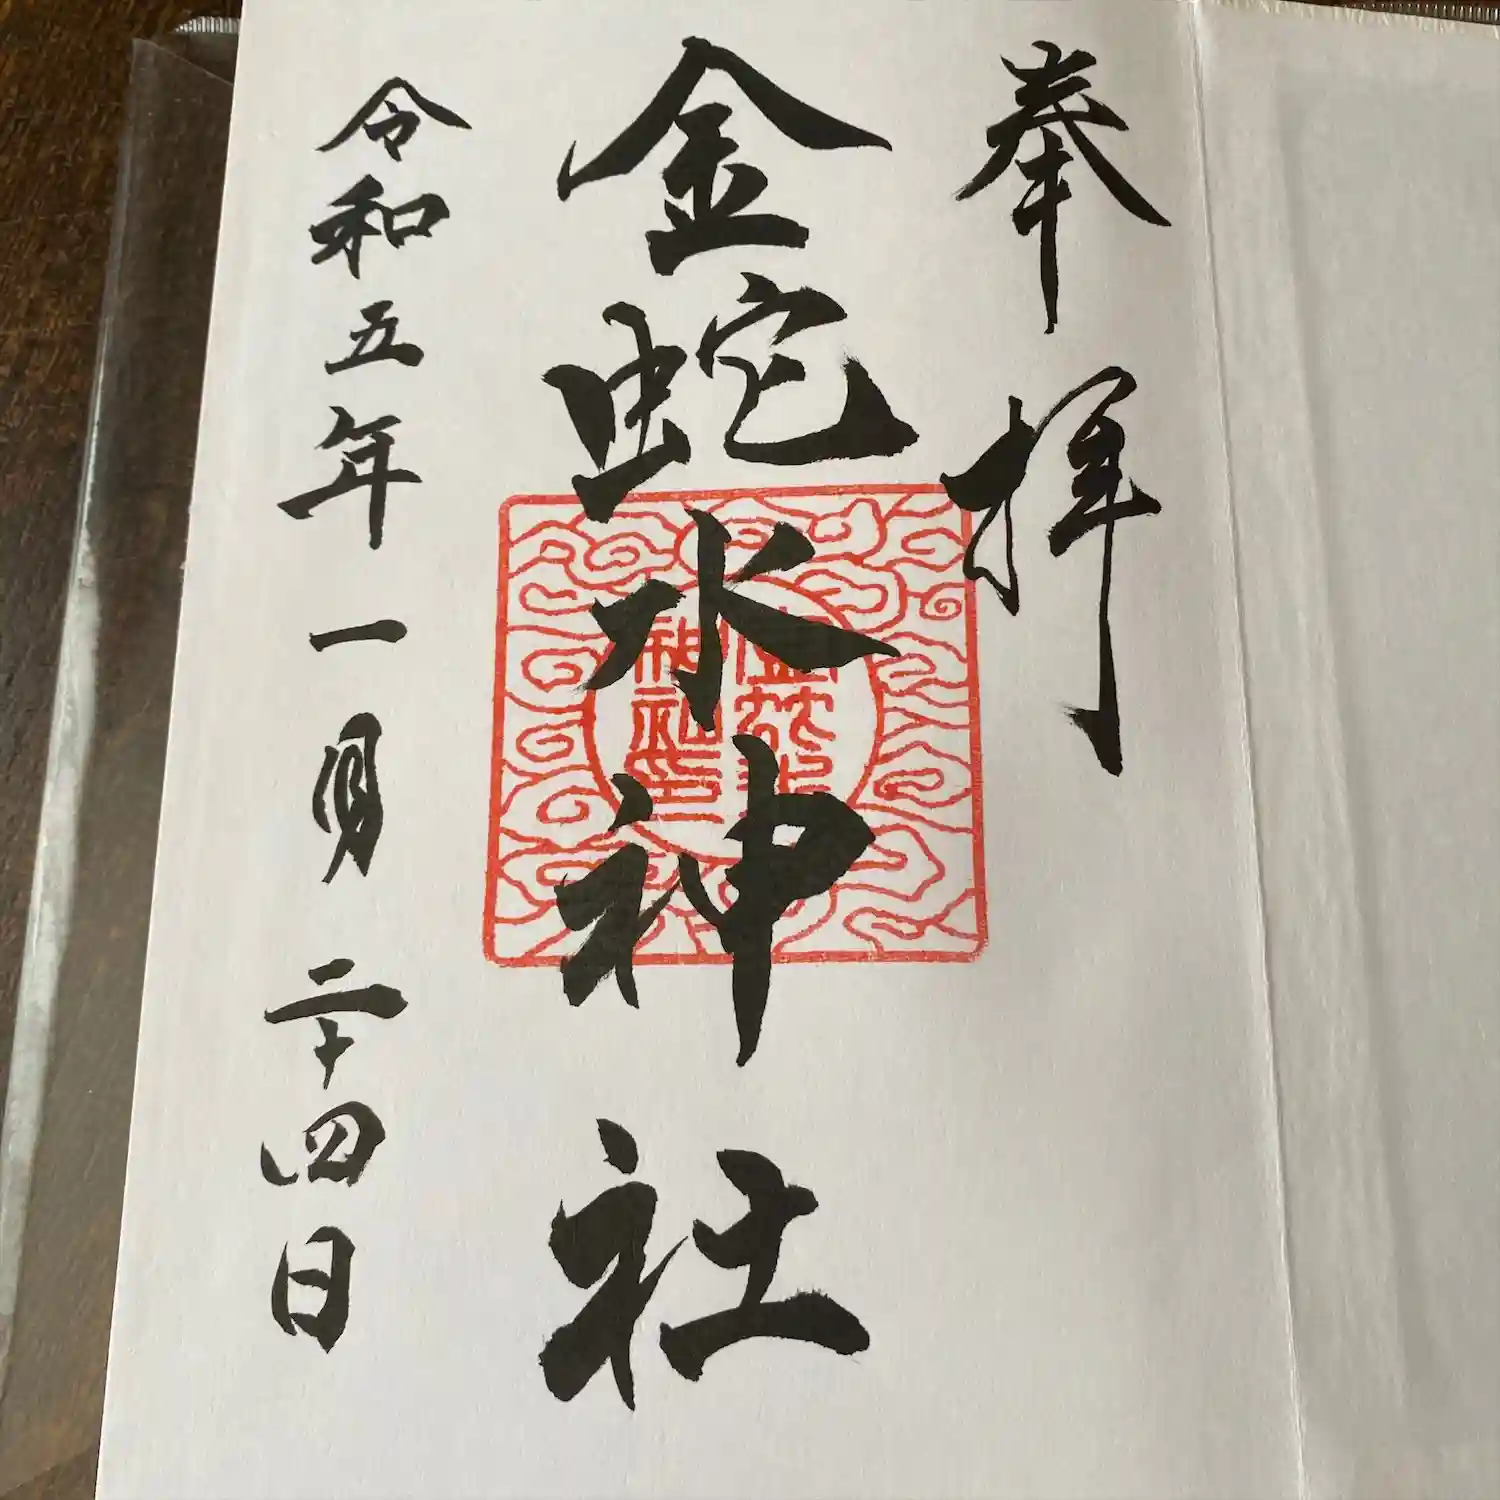 奉拝
金蛇水神社
令和五年一月二十四日